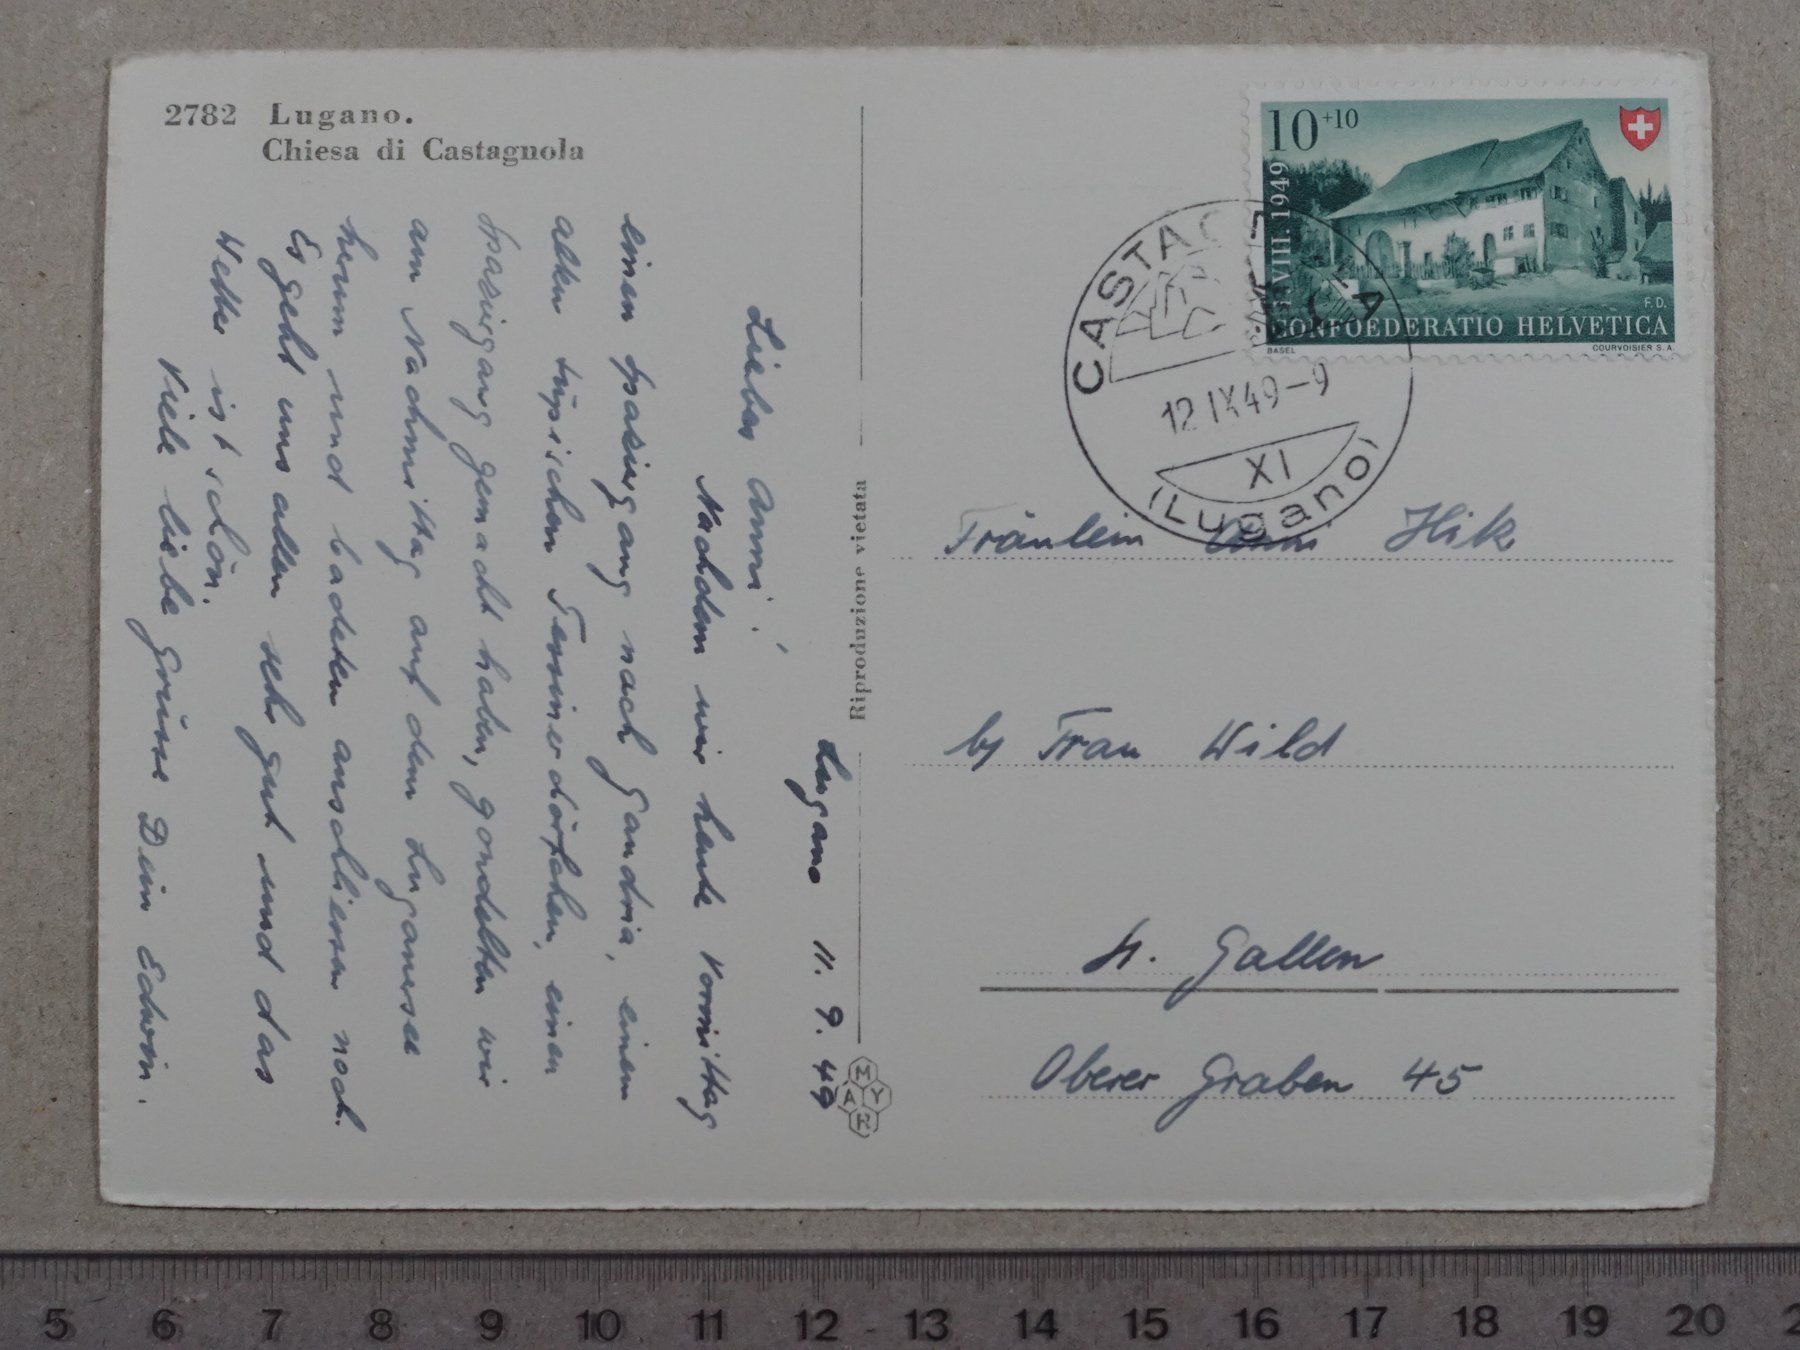 2782 Lugano.
Chiesa di Castagnola
Lugano 11. 9. 49
Liebes Anni!
Nachdem wir heute Vormittag
einen Spaziergang nach Gandria, einem
alten typischen Tessinerdörfchen, einen
Spaziergang gemacht haben, gondelten wir
am Nachmittag auf dem Luganersee
herum und badeten anschliessen noch.
Es geht uns allen sehr gut und das
Wetter ist schön.
Viele liebe Grüsse Dein Edwin.
Riproduzione vietata
MYAR
10+10
1.VIII.1949
F.D.
CONFOEDERATIO HELVETICA
BASEL
COURVOISIER S.A.
CASTAGNOLA
12.IX.49-9
XI
(Lugano)
Fräulein Anni Hik
by Frau Wild
St. Gallen
Oberer Graben 45
5 6 7 8 9 10 11 12 13 14 15 16 17 18 19 20 2